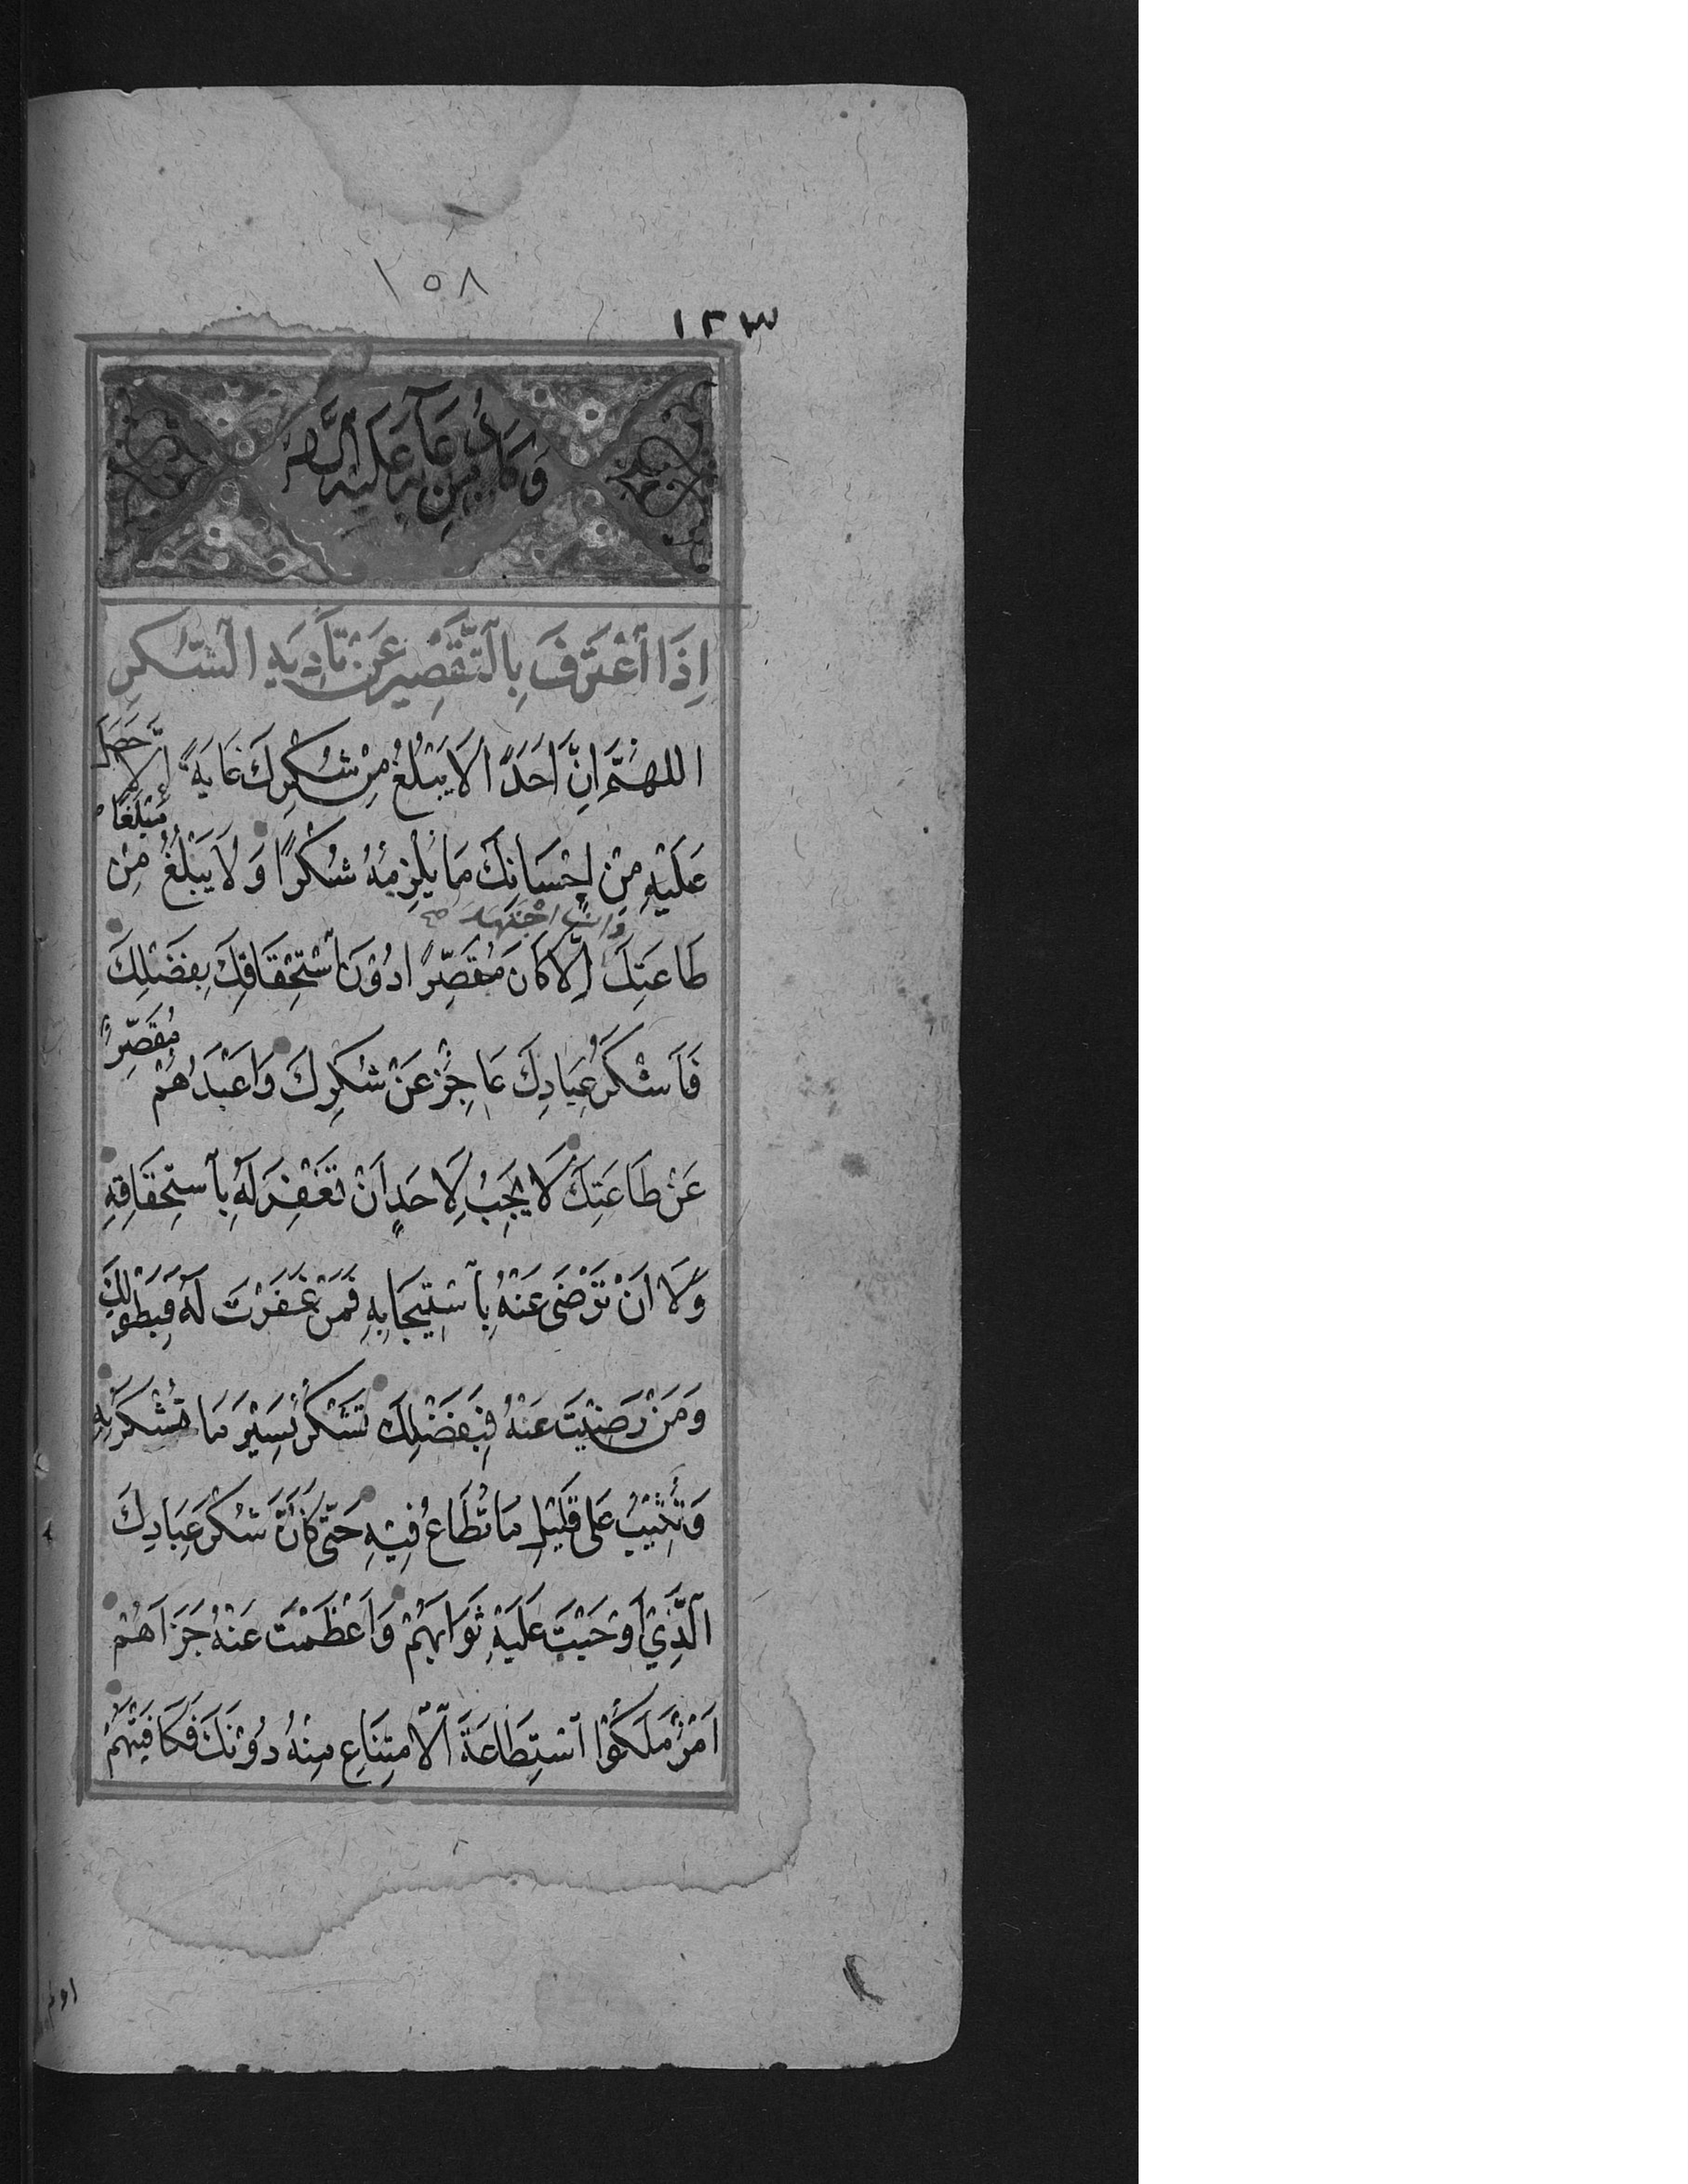 ١٥٨
١٢٣
وَكَانَ مِنْ دُعَآئِهِ عَلَيْهِ السَّلَامُ
إِذَا ٱعْتَرَفَ بِالتَّقْصِيرِ عَنْ تَأْدِيَةِ الشُّكْرِ
اللهُمَّ اِنَّ اَحَدًا لَا يَبْلُغُ مِنْ شُكْرِكَ غَايَةً اِلَّا حَصَلَ
عَلَيْهِ مِنْ اِحْسَانِكَ مَا يُلْزِمُهُ شُكْرًا وَلَا يَبْلُغُ مَبْلَغًا مِنْ
طَاعَتِكَ وَاِنِ اجْتَهَدَ اِلَّا كَانَ مُقَصِّرًا دُوْنَ ٱسْتِحْقَاقِكَ بِفَضْلِكَ
فَاَشْكَرُ عِبَادِكَ عَاجِزٌ عَنْ شُكْرِكَ وَاَعْبَدُهُمْ مُقَصِّرٌ
عَنْ طَاعَتِكَ لَا يَجِبُ لِاَحَدٍ اَنْ تَغْفِرَ لَهُ بِٱسْتِحْقَاقِهِ
وَلَا اَنْ تَرْضَى عَنْهُ بِٱسْتِيْجَابِهِ فَمَنْ غَفَرْتَ لَهُ فَبِطَوْلِكَ
وَمَنْ رَضِيْتَ عَنْهُ فَبِفَضْلِكَ تَشْكُرُ يَسِيْرَ مَا تُشْكَرُ بِهِ
وَتُثِيْبُ عَلَى قَلِيْلِ مَا تُطَاعُ فِيْهِ حَتّى كَاَنَّ شُكْرَ عِبَادِكَ
ٱلَّذِيْ اَوْجَبْتَ عَلَيْهِ ثَوَابَهُمْ وَاَعْظَمْتَ عَنْهُ جَزَاهُمْ
اَمْرٌ مَلَكُوْا ٱسْتِطَاعَةَ ٱلْاِمْتِنَاعِ مِنْهُ دُوْنَكَ فَكَافَيْتَهُمْ